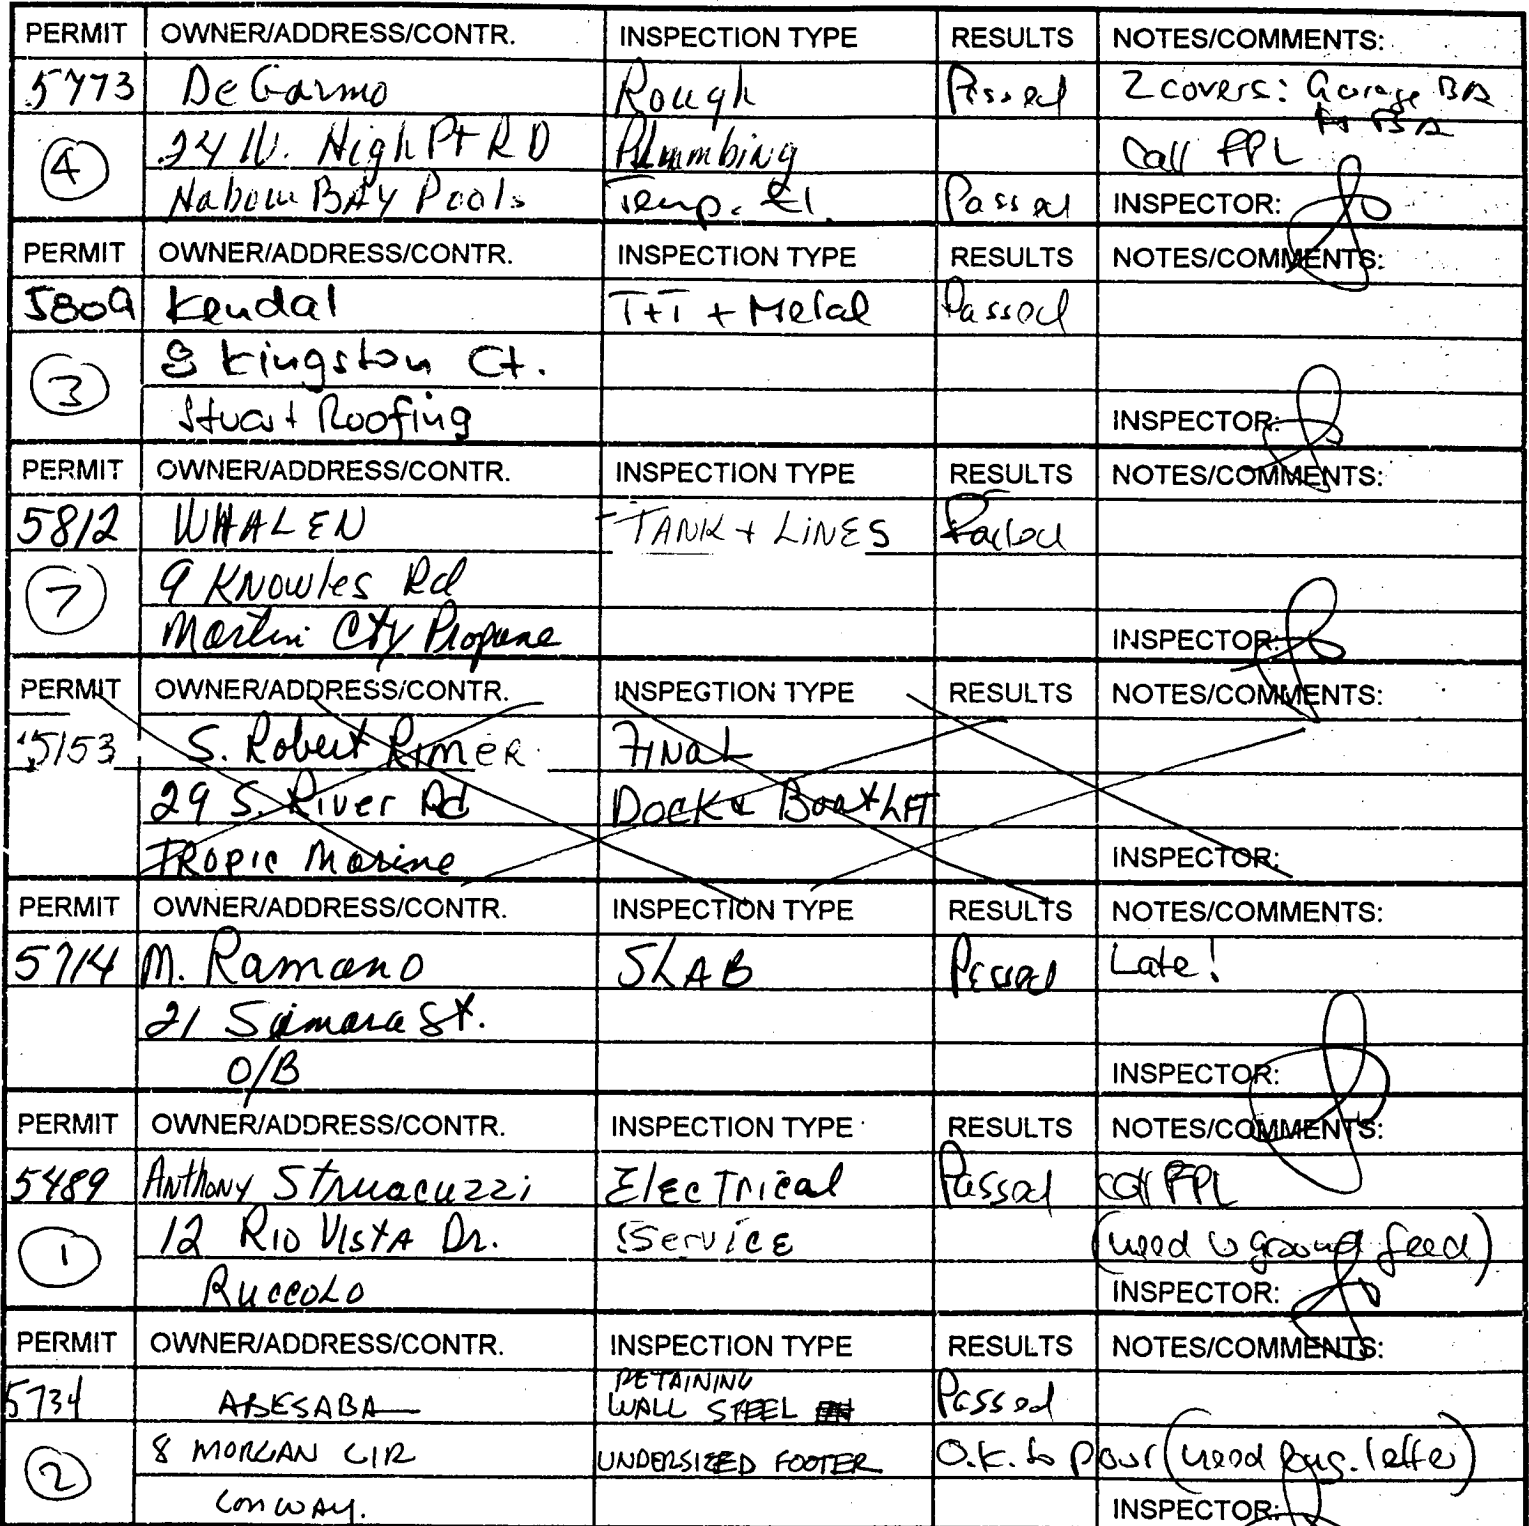 PERMIT OWNER/ADDRESS/CONTR. INSPECTION TYPE RESULTS NOTES/COMMENTS:
5773 DeGarmo Rough Passed 2 covers: Garage BA
24 N. High Pt RD Plummbing Call FPL
4
Habour BAY Pools Temp. El. Passed INSPECTOR:
PERMIT OWNER/ADDRESS/CONTR. INSPECTION TYPE RESULTS NOTES/COMMENTS:
5809 Kendal T+T + Metal Passed
8 Kingston Ct.
3
Stuart Roofing INSPECTOR:
PERMIT OWNER/ADDRESS/CONTR. INSPECTION TYPE RESULTS NOTES/COMMENTS:
5812 WHALEN TANK + LINES Failed
9 Knowles Rd
7
Martin Cty Propane INSPECTOR:
PERMIT OWNER/ADDRESS/CONTR. INSPECTION TYPE RESULTS NOTES/COMMENTS:
5153 S. Robert RIMER FINAL
29 S. River Rd Dock & Boat Lift
TROPIC Marine INSPECTOR:
PERMIT OWNER/ADDRESS/CONTR. INSPECTION TYPE RESULTS NOTES/COMMENTS:
5714 M. Ramano SLAB Passed Late!
21 Simara St.
O/B INSPECTOR:
PERMIT OWNER/ADDRESS/CONTR. INSPECTION TYPE RESULTS NOTES/COMMENTS:
5489 Anthony Struacuzzi Electrical Passed call FPL
12 Rio Vista Dr. Service (need u ground feed)
1
Ruccolo INSPECTOR:
PERMIT OWNER/ADDRESS/CONTR. INSPECTION TYPE RESULTS NOTES/COMMENTS:
RETAINING
5734 ABESABA WALL STEEL Passed
8 MORGAN CIR UNDERSIZED FOOTER O.K. to pour (need eng. letter)
2
CONWAY. INSPECTOR: